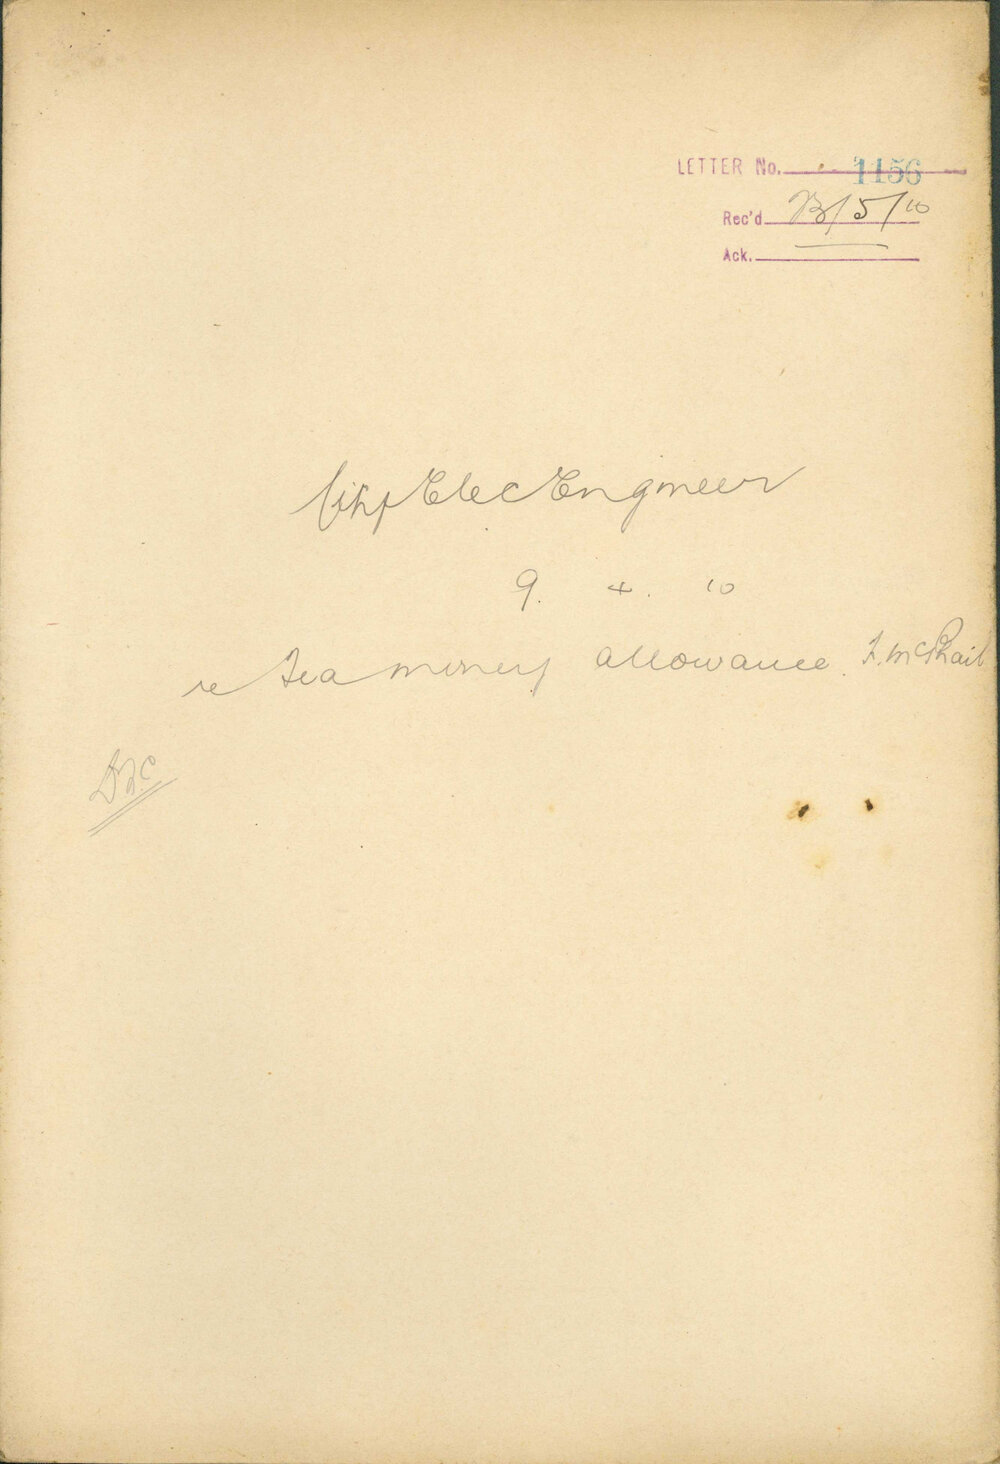 LETTER No. 1156
Rec'd 13/5/10
Ack.
Chf Elec Engineer
9. 4. 10
re Tea money allowance F. McPhail